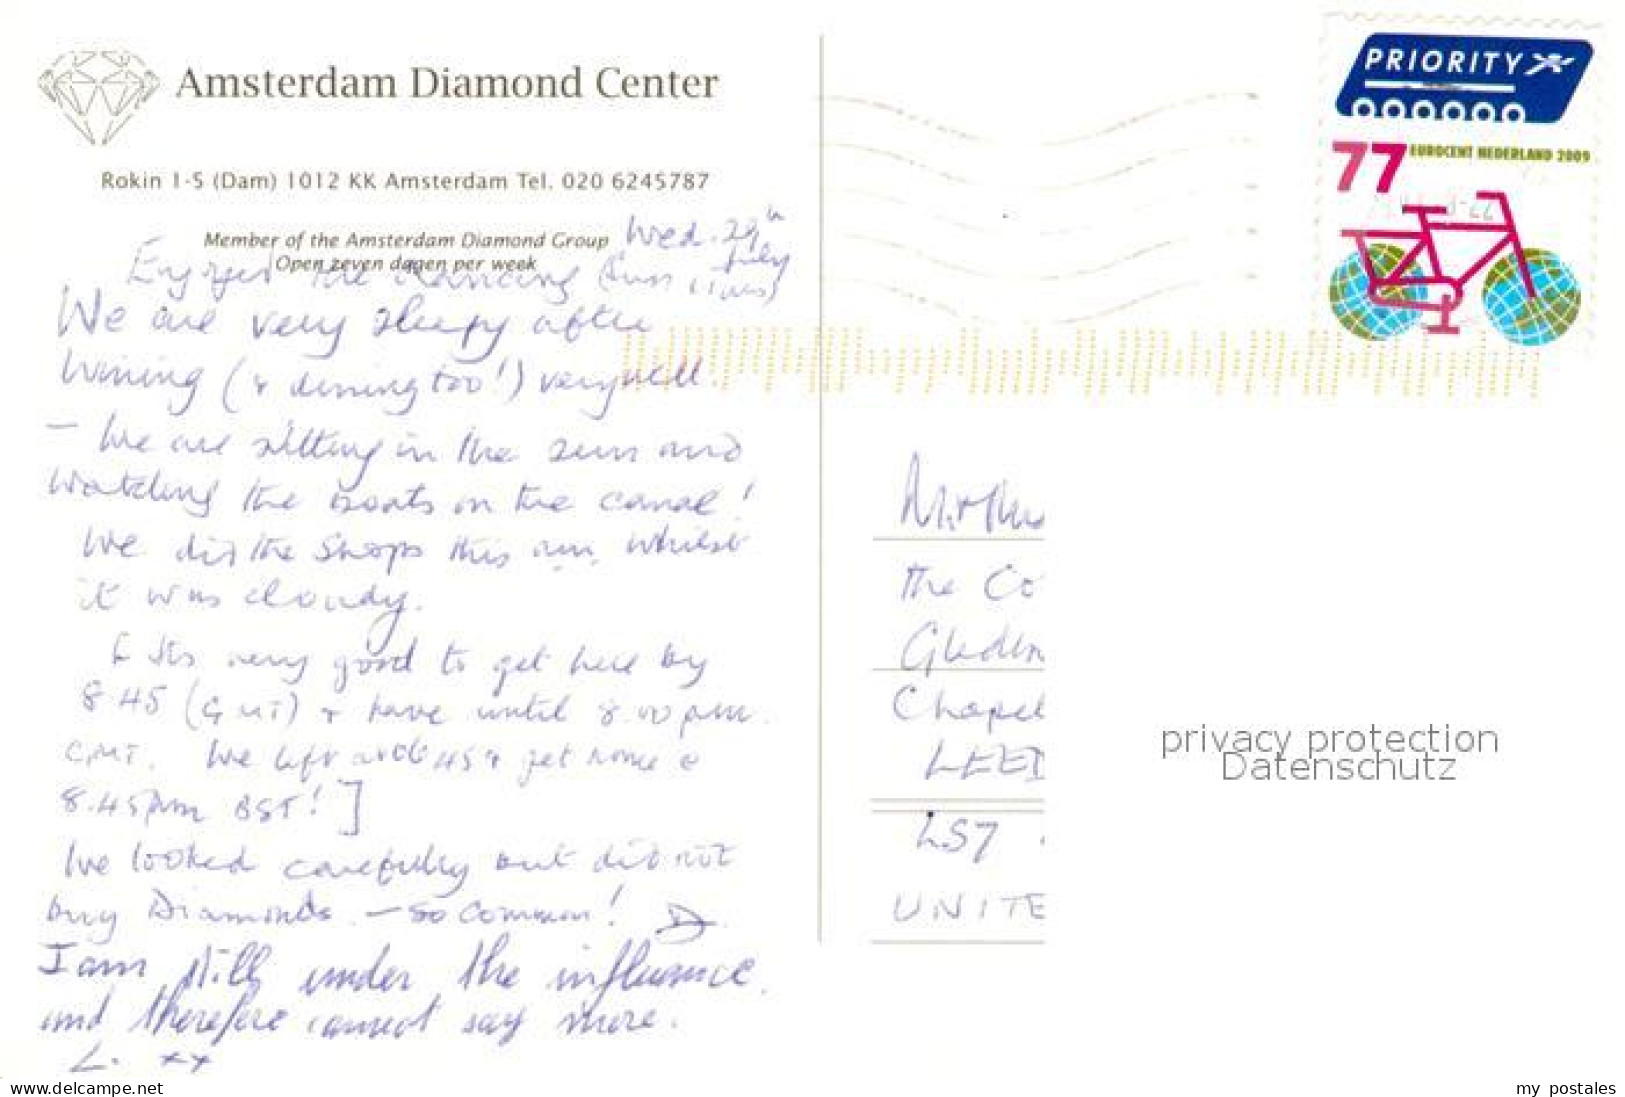 Amsterdam Diamond Center
Rokin 1-5 (Dam) 1012 KK Amsterdam Tel. 020 6245787
Member of the Amsterdam Diamond Group
Open zeven dagen per week
Wed. 29th
July
Enjoyed the Dancing
We are very sleepy after
wining (& dining too!) very well.
- We are sitting in the sun and
watching the boats on the canal!
We did the shops this am. whilst
it was cloudy.
[ Its very good to get here by
8.45 (GMT) & have until 8.00 pm
GMT. We left 45 & get home @
8.45pm BST! ]
We looked carefully but did not
buy Diamonds. - so common! D.
I am still under the influence
and therefore cannot say more.
L. xx
PRIORITY
77 EUROCENT NEDERLAND 2009
The Co
Chapel
LEED
LS7
UNITE
privacy protection
Datenschutz
www.delcampe.net
my_postales